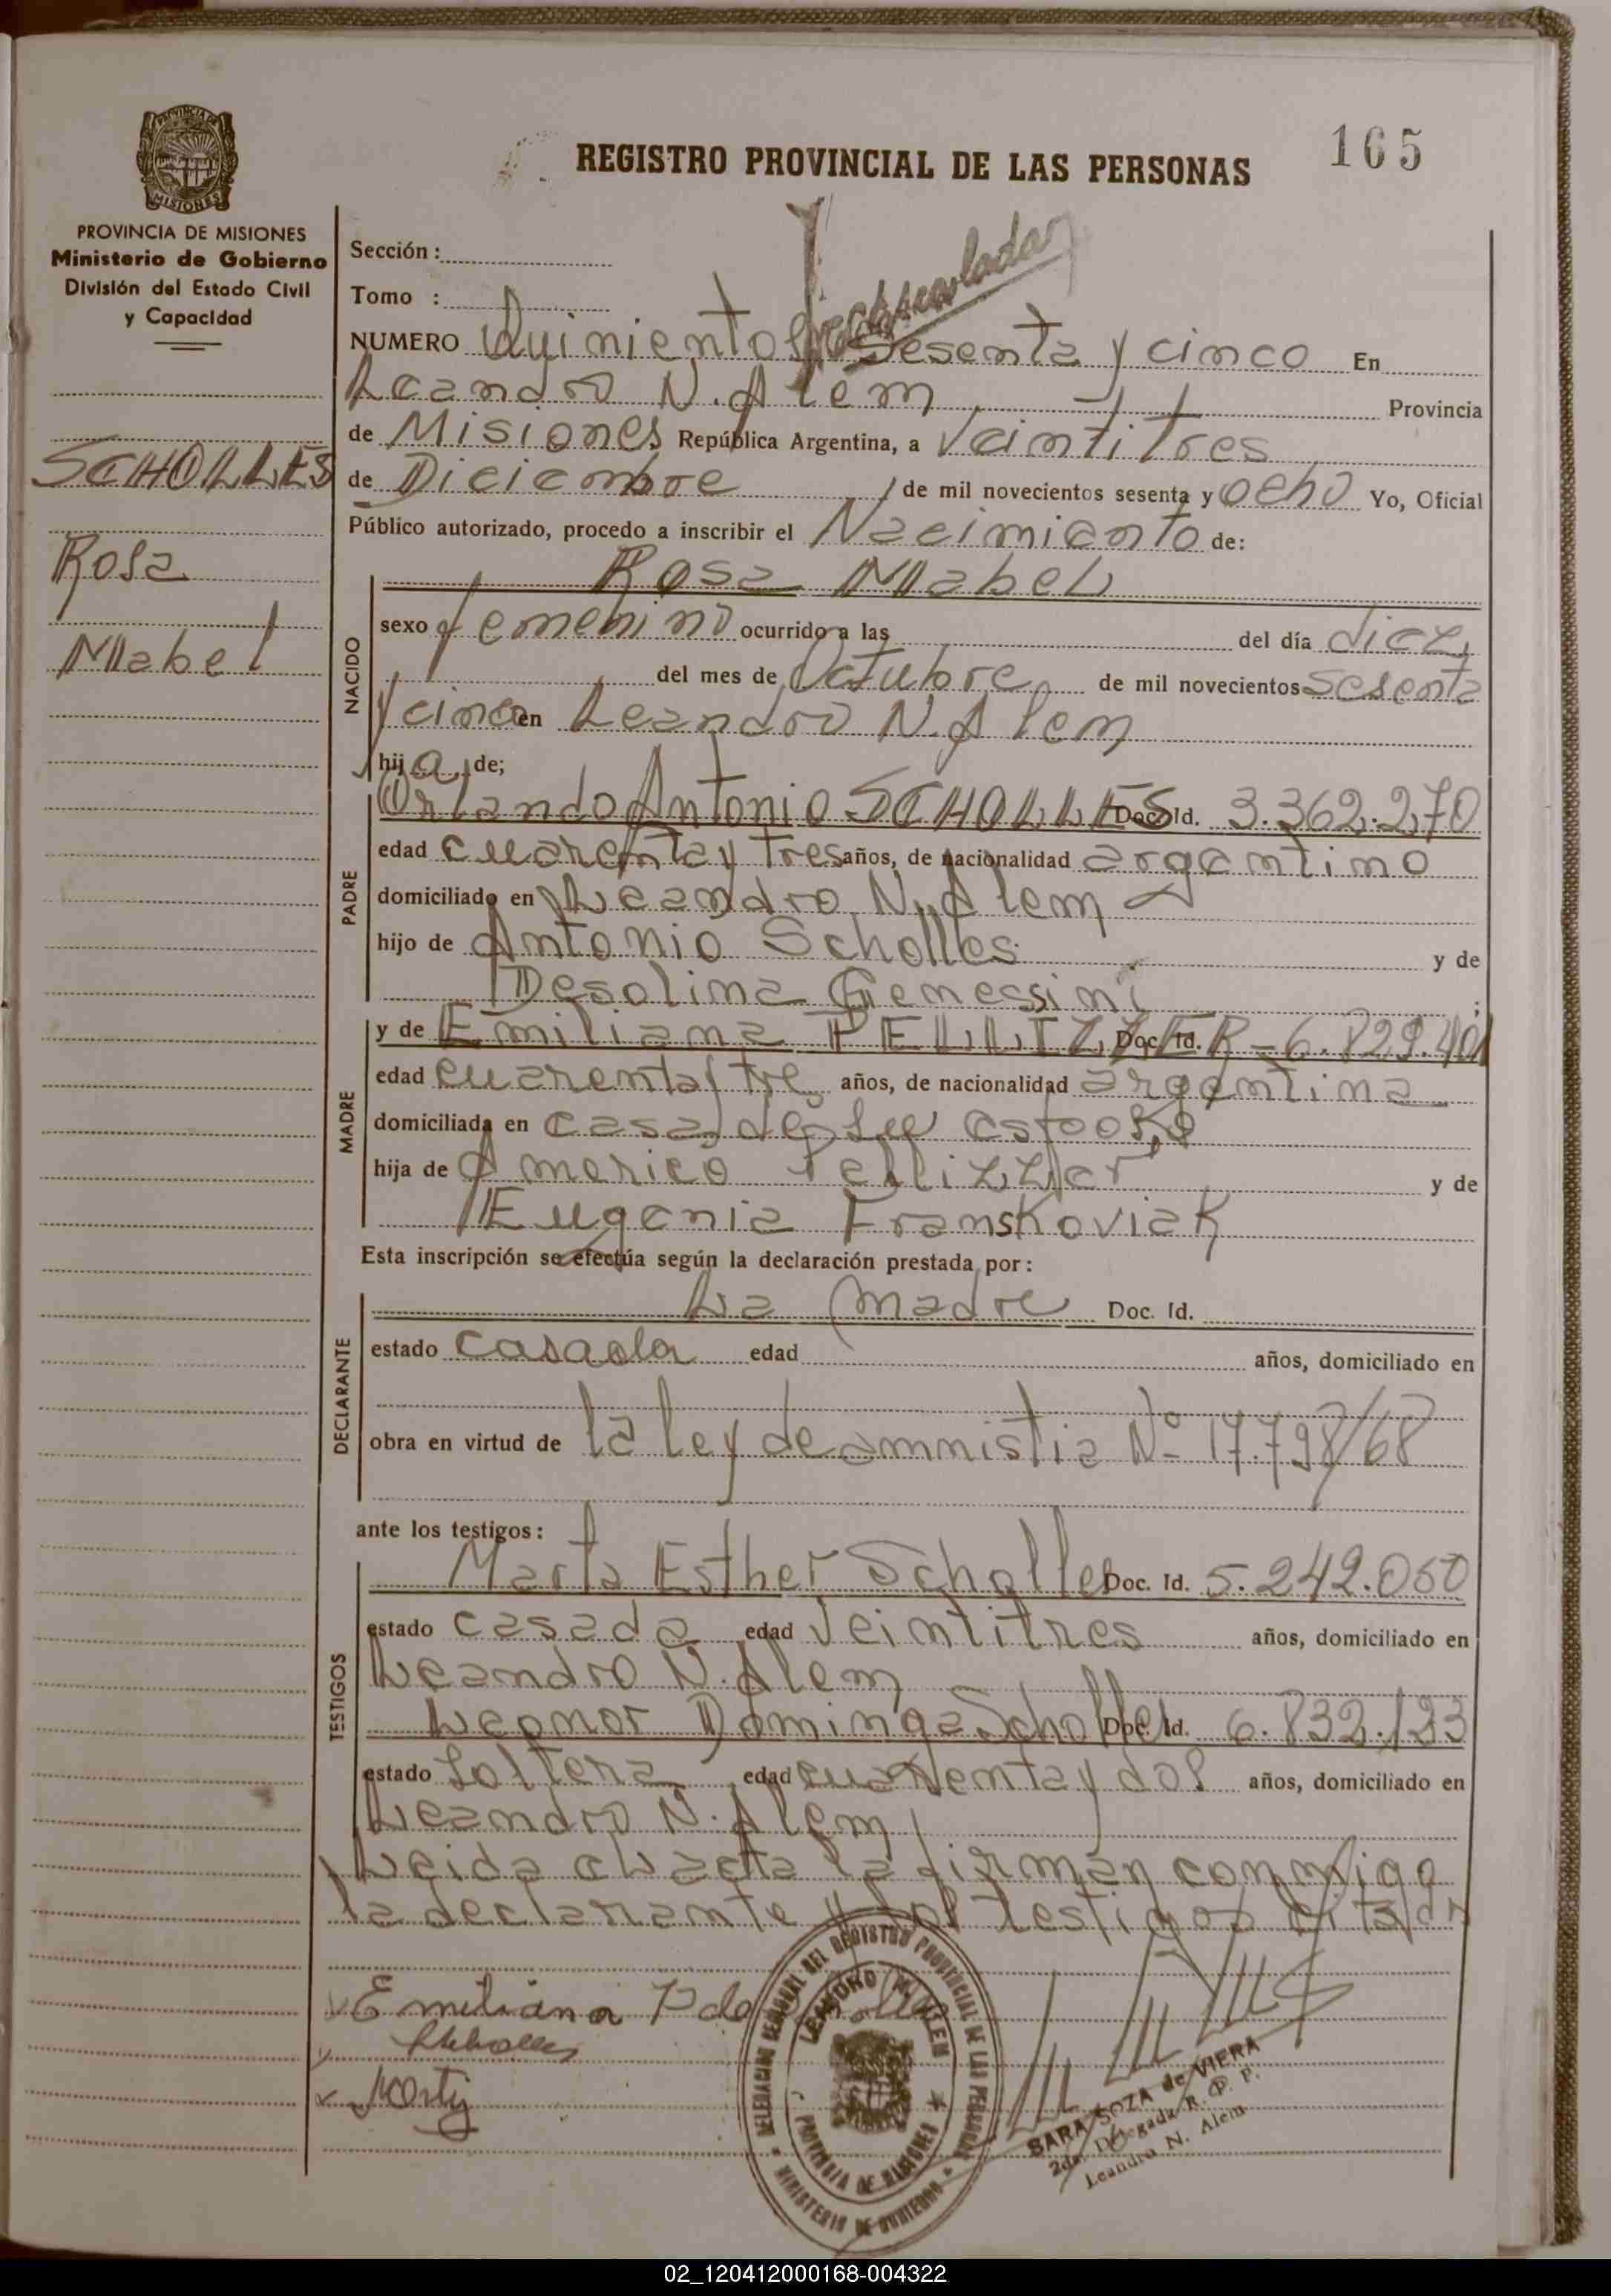 165
REGISTRO PROVINCIAL DE LAS PERSONAS
PROVINCIA DE MISIONES
PROVINCIA DE MISIONES
Ministerio de Gobierno
División del Estado Civil
y Capacidad
SCHOLLES
Rosa
Mabel
Sección :
Tomo :
NUMERO Quinientos Sesenta y cinco En
Leandro N. Alem Provincia
de Misiones República Argentina, a Veintitres
de Diciembre de mil novecientos sesenta y ocho Yo, Oficial
Público autorizado, procedo a inscribir el Nacimiento de:
Rosa Mabel
NACIDO
sexo femenino ocurrido a las del día diez
del mes de Octubre de mil novecientos sesenta
y cinco en Leandro N. Alem
hija de;
PADRE
Orlando Antonio SCHOLLES Doc. Id. 3.362.270
edad cuarenta y tres años, de nacionalidad argentino
domiciliado en Leandro N. Alem
hijo de Antonio Scholles y de
Desolina Genessini ;
MADRE
y de Emiliana PELLIZZER Doc. Id. 6.829.401
edad cuarenta y tres años, de nacionalidad argentina
domiciliada en casa de su esposo
hija de Americo Pellizzer y de
Eugenia Franskoviak
Esta inscripción se efectúa según la declaración prestada por :
DECLARANTE
La madre Doc. Id.
estado casada edad años, domiciliado en
obra en virtud de la ley de amnistia Nº 17.798/68
ante los testigos :
TESTIGOS
Marta Esther Scholles Doc. Id. 5.242.050
estado casada edad Veintitres años, domiciliado en
Leandro N. Alem
Leonor Dominga Scholles Doc. Id. 6.832.123
estado soltera edad cuarenta y dos años, domiciliado en
Leandro N. Alem
Leida el acta la firman conmigo
la declarante y los testigos citados
Emiliana P de
DELEGACION SECCIONAL DEL REGISTRO PROVINCIAL DE LAS PERSONAS
LEANDRO N. ALEM
PROVINCIA DE MISIONES
MINISTERIO DE GOBIERNO
SARA SOZA de VIERA
2da. Delegada R. P. P.
Leandro N. Alem
02_120412000168-004322